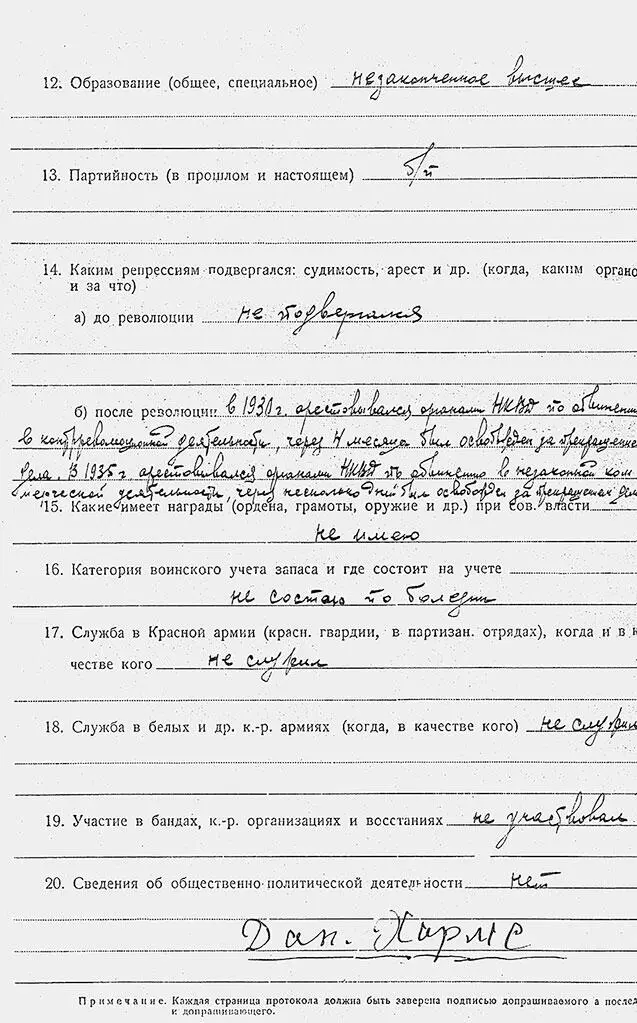 12. Образование (общее, специальное) незаконченное высшее
13. Партийность (в прошлом и настоящем) б/п
14. Каким репрессиям подвергался: судимость, арест и др. (когда, каким органо
и за что)
а) до революции не подвергался
б) после революции в 1931 г. арестовывался органами НКВД по обвинени
в контрреволюционной деятельности, через 4 месяца был освобожден за прекращение
дела. В 1935 г арестовывался органами НКВД по обвинению в незаконной ком
мерческой деятельности, через несколько дней был освобожден за прекращением дел
15. Какие имеет награды (ордена, грамоты, оружие и др.) при сов. власти
не имею
16. Категория воинского учета запаса и где состоит на учете
не состою по болезни
17. Служба в Красной армии (красн. гвардии, в партизан. отрядах), когда и в к
честве кого не служил
18. Служба в белых и др. к.-р. армиях (когда, в качестве кого) не служил
19. Участие в бандах, к.-р. организациях и восстаниях не участвовал
20. Сведения об общественно-политической деятельности нет
Дан. Хармс
Примечание. Каждая страница протокола должна быть заверена подписью допрашиваемого а послед
и допрашивающего.